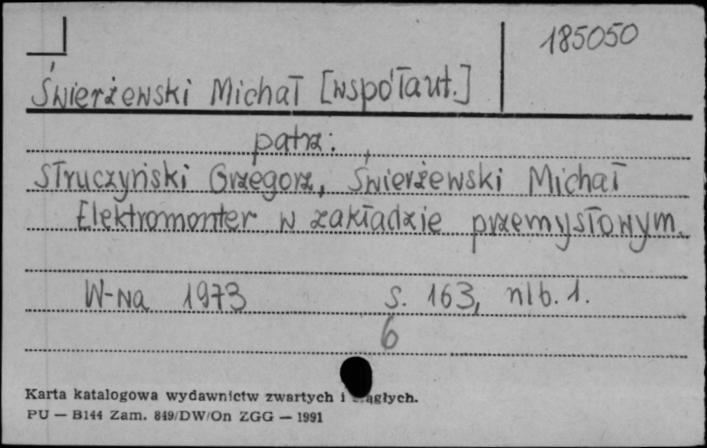 185050
Świerżewski Michał [współaut.]
patrz:
Struczyński Grzegorz, Świerżewski Michał
Elektromonter w zakładzie przemysłowym.
W-wa 1973 s. 163, nlb. 1.
6
Karta katalogowa wydawnictw zwartych i ciągłych.
PU — B144 Zam. 849/DW/On ZGG — 1991